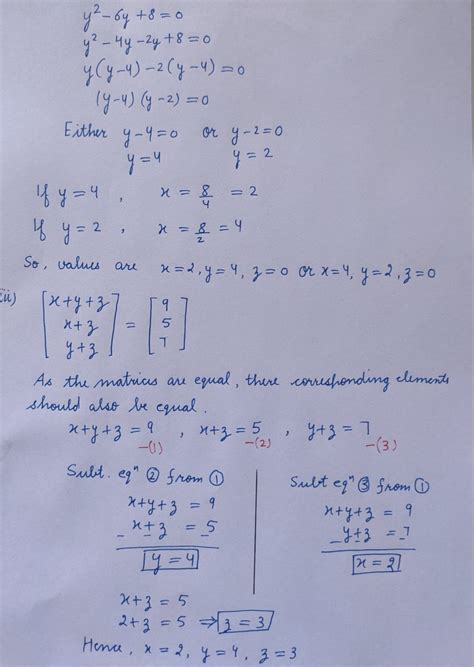 y² - 6y + 8 = 0
y² - 4y - 2y + 8 = 0
y(y-4) - 2(y-4) = 0
(y-4) (y-2) = 0
Either y-4=0 or y-2=0
y=4 y=2
If y=4, x = 8/4 = 2
If y=2, x = 8/2 = 4
So, values are x=2, y=4, z=0 or x=4, y=2, z=0
iii) [x+y+z] = [9]
[x+z] [5]
[y+z] [7]
As the matrices are equal, there corresponding elements
should also be equal.
x+y+z = 9 , x+z = 5 , y+z = 7
-(1) -(2) -(3)
Subt. eqⁿ ② from ①
x+y+z = 9
- x+z = -5
y = 4
x+z = 5
2+z = 5 ⇒ z = 3
Subt eqⁿ ③ from ①
x+y+z = 9
- y+z = -7
x = 2
Hence, x = 2, y = 4, z = 3